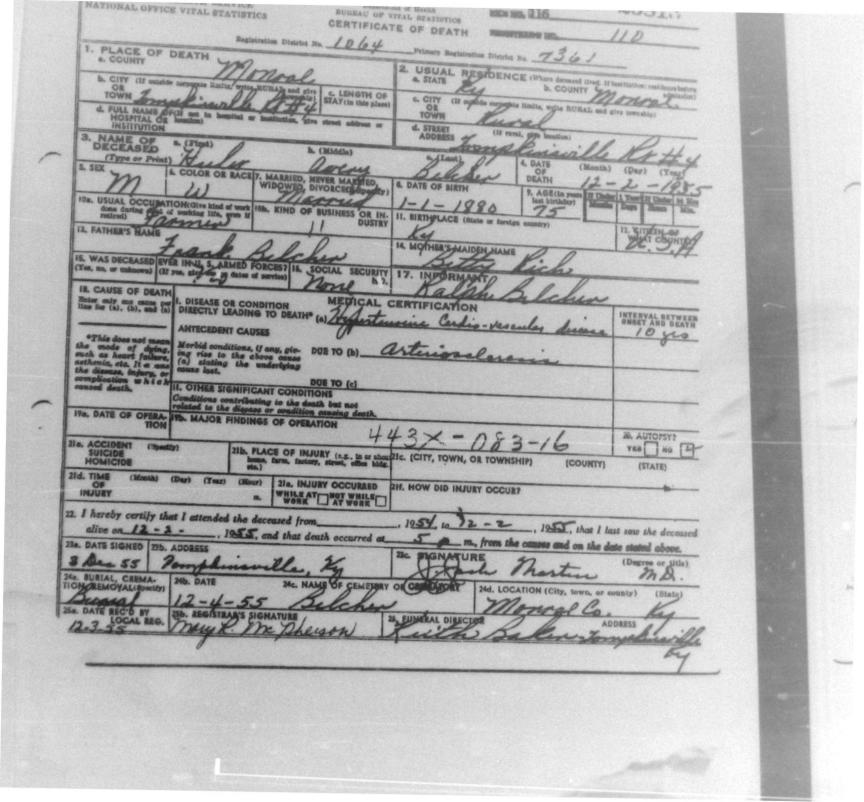 NATIONAL OFFICE VITAL STATISTICS
BUREAU OF VITAL STATISTICS
CERTIFICATE OF DEATH
116
REGISTRAR'S NO. 110
Registration District No. 1064 Primary Registration District No. 7361
1. PLACE OF DEATH
a. COUNTY Monroe
2. USUAL RESIDENCE (Where deceased lived. If institution: residence before admission)
a. STATE Ky b. COUNTY Monroe
b. CITY OR TOWN (If outside corporate limits, write RURAL and give township) Tompkinsville Rt #4
c. LENGTH OF STAY (in this place)
c. CITY OR TOWN (If outside corporate limits, write RURAL and give township) Rural
d. FULL NAME OF HOSPITAL OR INSTITUTION (If not in hospital or institution, give street address or location)
d. STREET ADDRESS (If rural, give location) Tompkinsville Rt #4
3. NAME OF DECEASED (Type or Print) a. (First) b. (Middle) Avery c. (Last) Belcher
4. DATE OF DEATH (Month) (Day) (Year) 12-2-1955
5. SEX M
6. COLOR OR RACE W
7. MARRIED, NEVER MARRIED, WIDOWED, DIVORCED (Specify) Married
8. DATE OF BIRTH 1-1-1880
9. AGE (In years last birthday) 75
If Under 1 Year Months Days If Under 24 Hrs Hours Min.
10a. USUAL OCCUPATION (Give kind of work done during most of working life, even if retired) Farmer
10b. KIND OF BUSINESS OR INDUSTRY 11
11. BIRTHPLACE (State or foreign country) Ky
12. CITIZEN OF WHAT COUNTRY? U.S.A
13. FATHER'S NAME Frank Belcher
14. MOTHER'S MAIDEN NAME Betty Rich
15. WAS DECEASED EVER IN U. S. ARMED FORCES? (Yes, no, or unknown) (If yes, give war or dates of service)
16. SOCIAL SECURITY None
17. INFORMANT Ralph Belcher
18. CAUSE OF DEATH
Enter only one cause per line for (a), (b), and (c)
MEDICAL CERTIFICATION
INTERVAL BETWEEN ONSET AND DEATH
I. DISEASE OR CONDITION DIRECTLY LEADING TO DEATH* (a) Hypertensive Cardio-vascular disease 10 yrs
*This does not mean the mode of dying, such as heart failure, asthenia, etc. It means the disease, injury, or complication which caused death.
ANTECEDENT CAUSES
Morbid conditions, if any, giving rise to the above cause (a) stating the underlying cause last.
DUE TO (b) arteriosclerosis
DUE TO (c)
II. OTHER SIGNIFICANT CONDITIONS
Conditions contributing to the death but not related to the disease or condition causing death.
19a. DATE OF OPERATION
19b. MAJOR FINDINGS OF OPERATION
443X - 083-16
20. AUTOPSY?
YES NO
21a. ACCIDENT SUICIDE HOMICIDE (Specify)
21b. PLACE OF INJURY (e.g., in or about home, farm, factory, street, office bldg. etc.)
21c. (CITY, TOWN, OR TOWNSHIP) (COUNTY) (STATE)
21d. TIME OF INJURY (Month) (Day) (Year) (Hour) m.
21e. INJURY OCCURRED WHILE AT WORK NOT WHILE AT WORK
21f. HOW DID INJURY OCCUR?
22. I hereby certify that I attended the deceased from , 1954 to 12-2 , 1955, that I last saw the deceased
alive on 12-2- , 1955, and that death occurred at 5 p m., from the causes and on the date stated above.
23a. DATE SIGNED 3 Dec 55
23b. ADDRESS Tompkinsville, Ky
23c. SIGNATURE Martin (Degree or title) M.D.
24a. BURIAL, CREMATION, REMOVAL (Specify) Burial
24b. DATE 12-4-55
24c. NAME OF CEMETERY OR CREMATORY Belcher
24d. LOCATION (City, town, or county) (State) Monroe Co. Ky
25a. DATE REC'D BY LOCAL REG. 12-3-55
25b. REGISTRAR'S SIGNATURE Mary R. McPherson
FUNERAL DIRECTOR ADDRESS Keith Baker - Tompkinsville
Ky